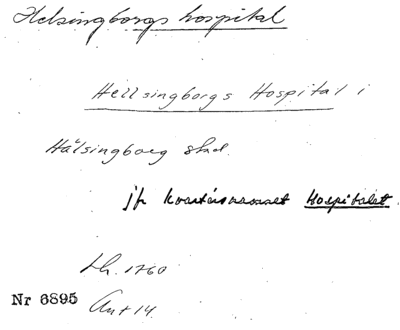 Helsingborgs hospital
Hellsingborgs Hospital i
Hälsingborg stad.
jfr kvartersnamnet Hospitalet.
Lh. 1760
Nr 6895
Ant 14